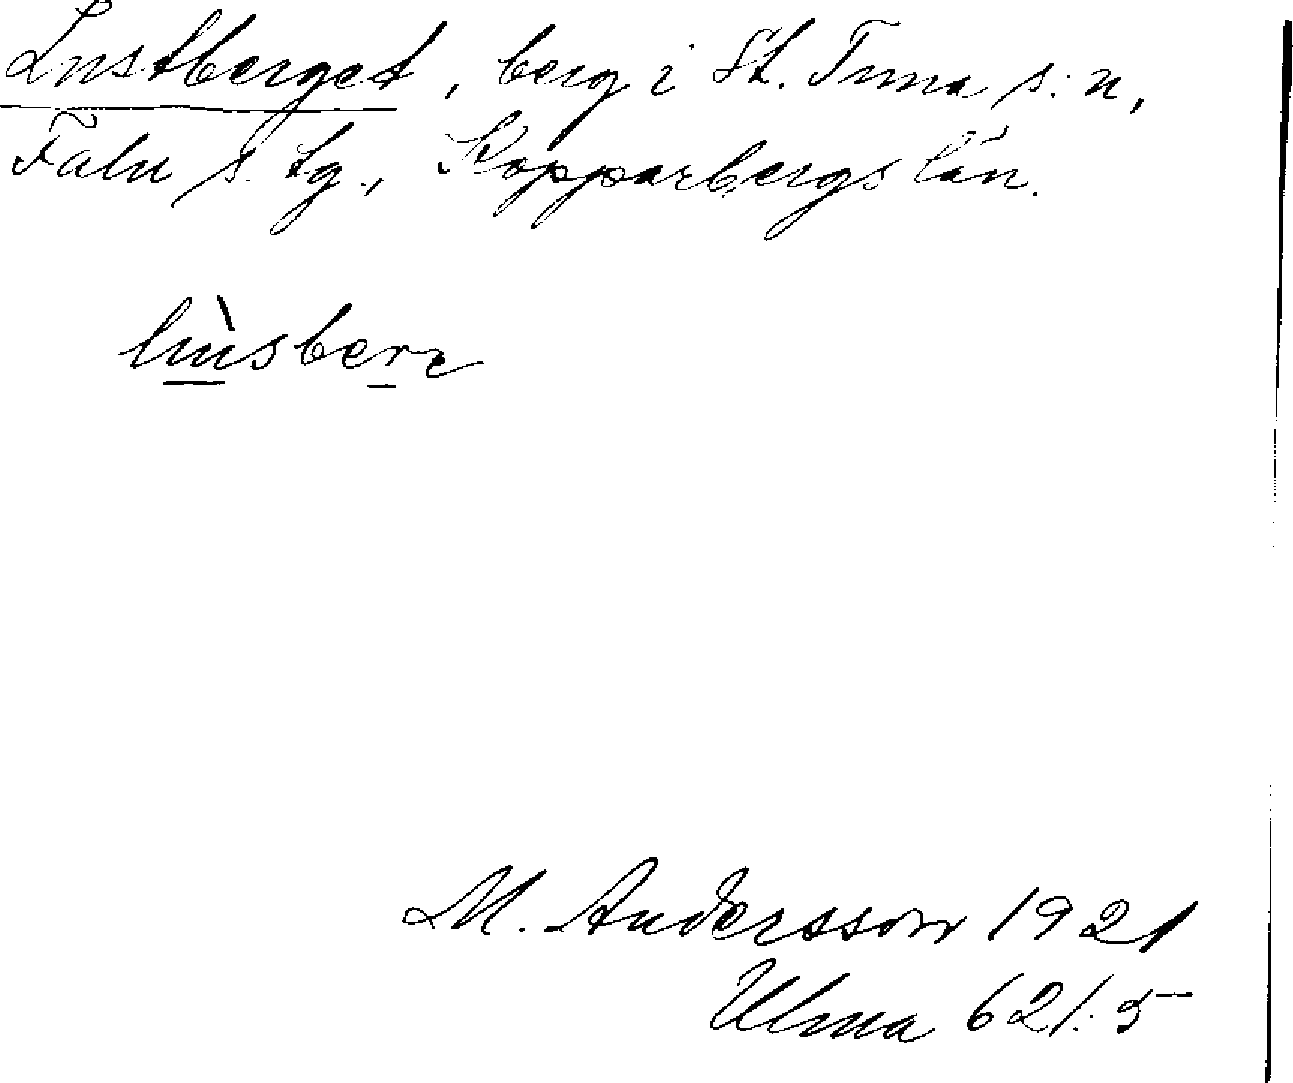 Lustberget, berg i St. Tuna s:n,
Falu s. tg., Kopparbergs län.
M. Andersson 1921
Ulma 621:5